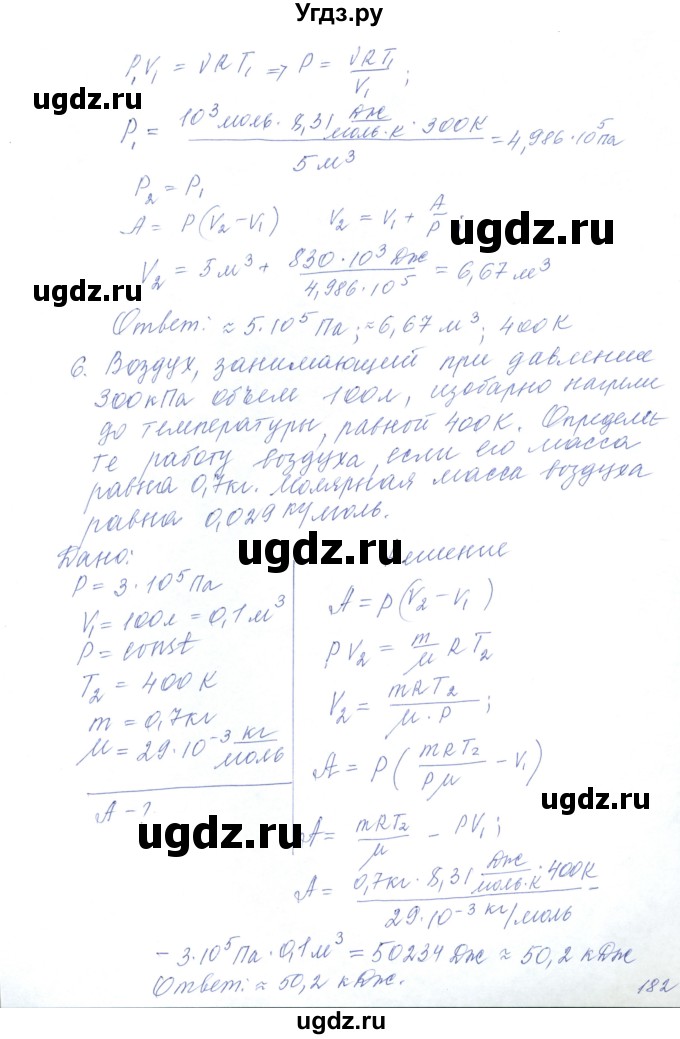 Угдз.ру
P₁V₁ = νRT₁ => P = νRT₁/V₁;
ugdz.ru ugdz.ru
P₁ = (10³ моль · 8,31 Дж/моль·К · 300К)/5м³ = 4,986·10⁵Па
P₂ = P₁
A = P(V₂-V₁) V₂ = V₁ + A/P;
ugdz.ru
V₂ = 5м³ + (830·10³ Дж)/(4,986·10⁵) = 6,67м³
ugdz.ru
Ответ: ≈ 5·10⁵ Па; ≈6,67 м³; 400К
6. Воздух, занимающий при давлении
300кПа объем 100л, изобарно нагрели
до температуры, равной 400К. Определи-
те работу воздуха, если его масса
равна 0,7кг. Молярная масса воздуха
равна 0,029 кг/моль.
ugdz.ru
Дано:
P = 3·10⁵Па
V₁ = 100л = 0,1м³
P = const
T₂ = 400К
m = 0,7кг
μ = 29·10⁻³ кг/моль
A - ?
ешение
A = P(V₂-V₁)
ugdz.ru
PV₂ = m/μ RT₂
V₂ = mRT₂/μ·P;
A = P(mRT₂/Pμ - V₁)
ugdz.ru
ugdz.ru
A = mRT₂/μ - PV₁;
A = (0,7кг · 8,31 Дж/моль·К · 400К)/(29·10⁻³ кг/моль) -
ugdz.ru
- 3·10⁵Па·0,1м³ = 50234 Дж ≈ 50,2 кДж
Ответ: ≈ 50,2 кДж.
182
ugdz.ru